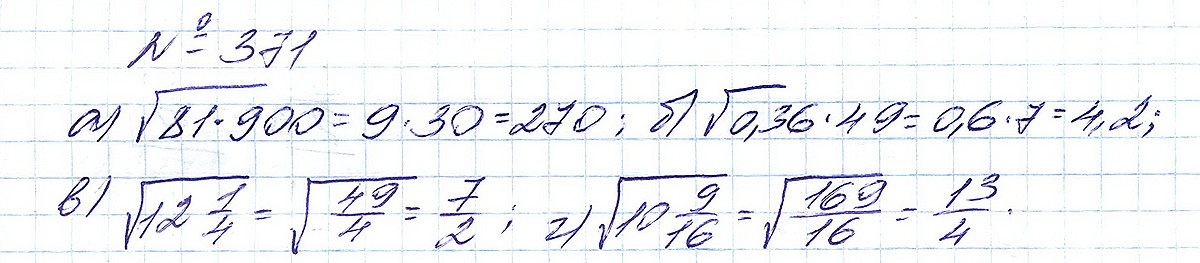 № 371
а) √81·900 = 9·30 = 270; б) √0,36·49 = 0,6·7 = 4,2;
в) √12 1/4 = √49/4 = 7/2; г) √10 9/16 = √169/16 = 13/4.